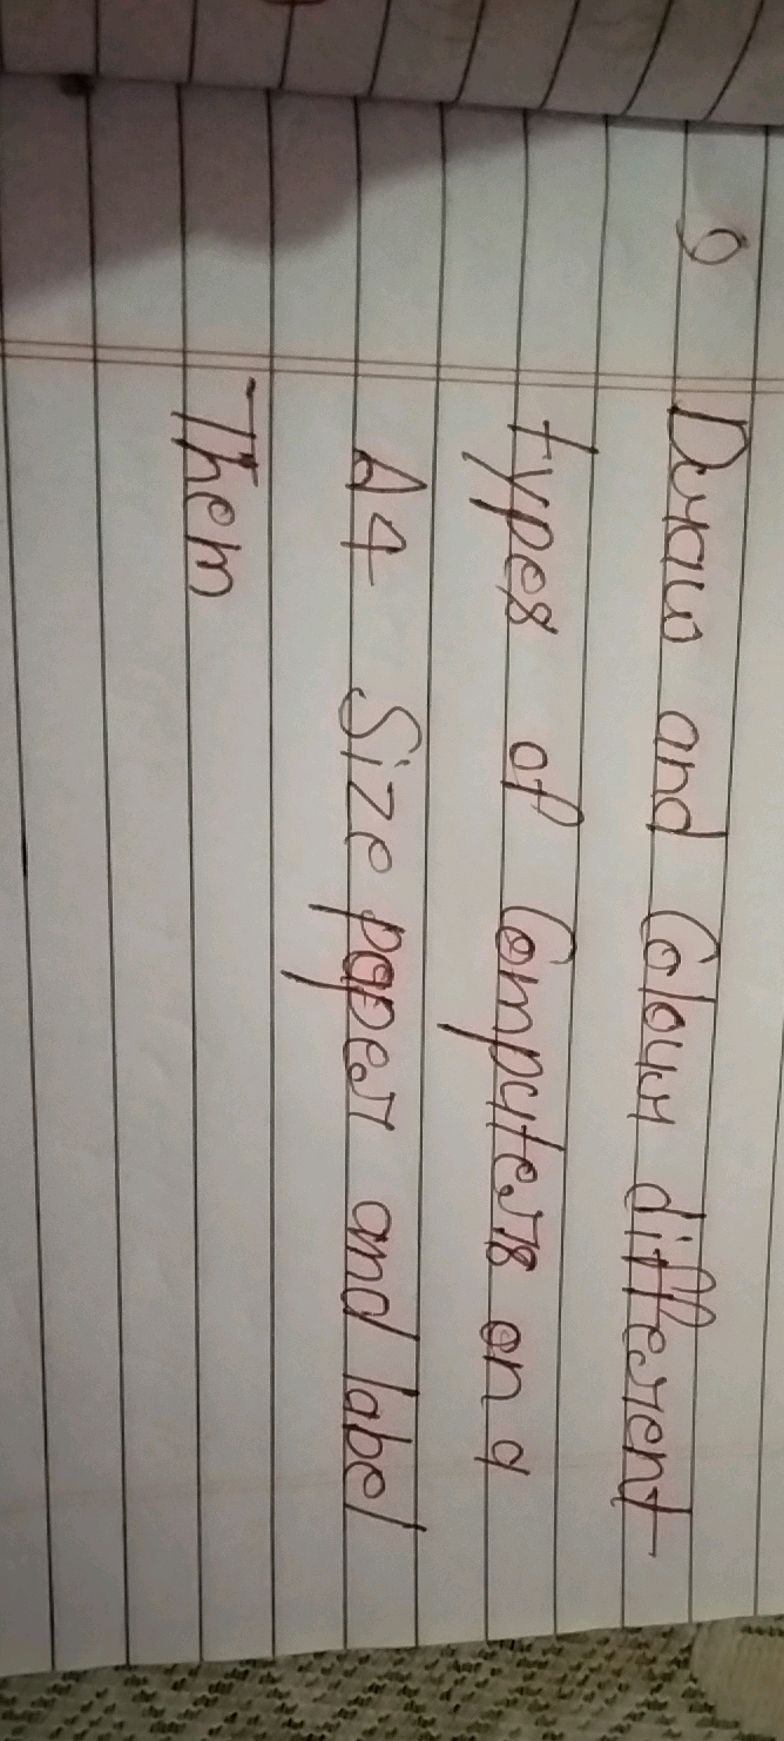 9 Draw and Colour different
types of Computers on a
A4 Size paper and label
Them